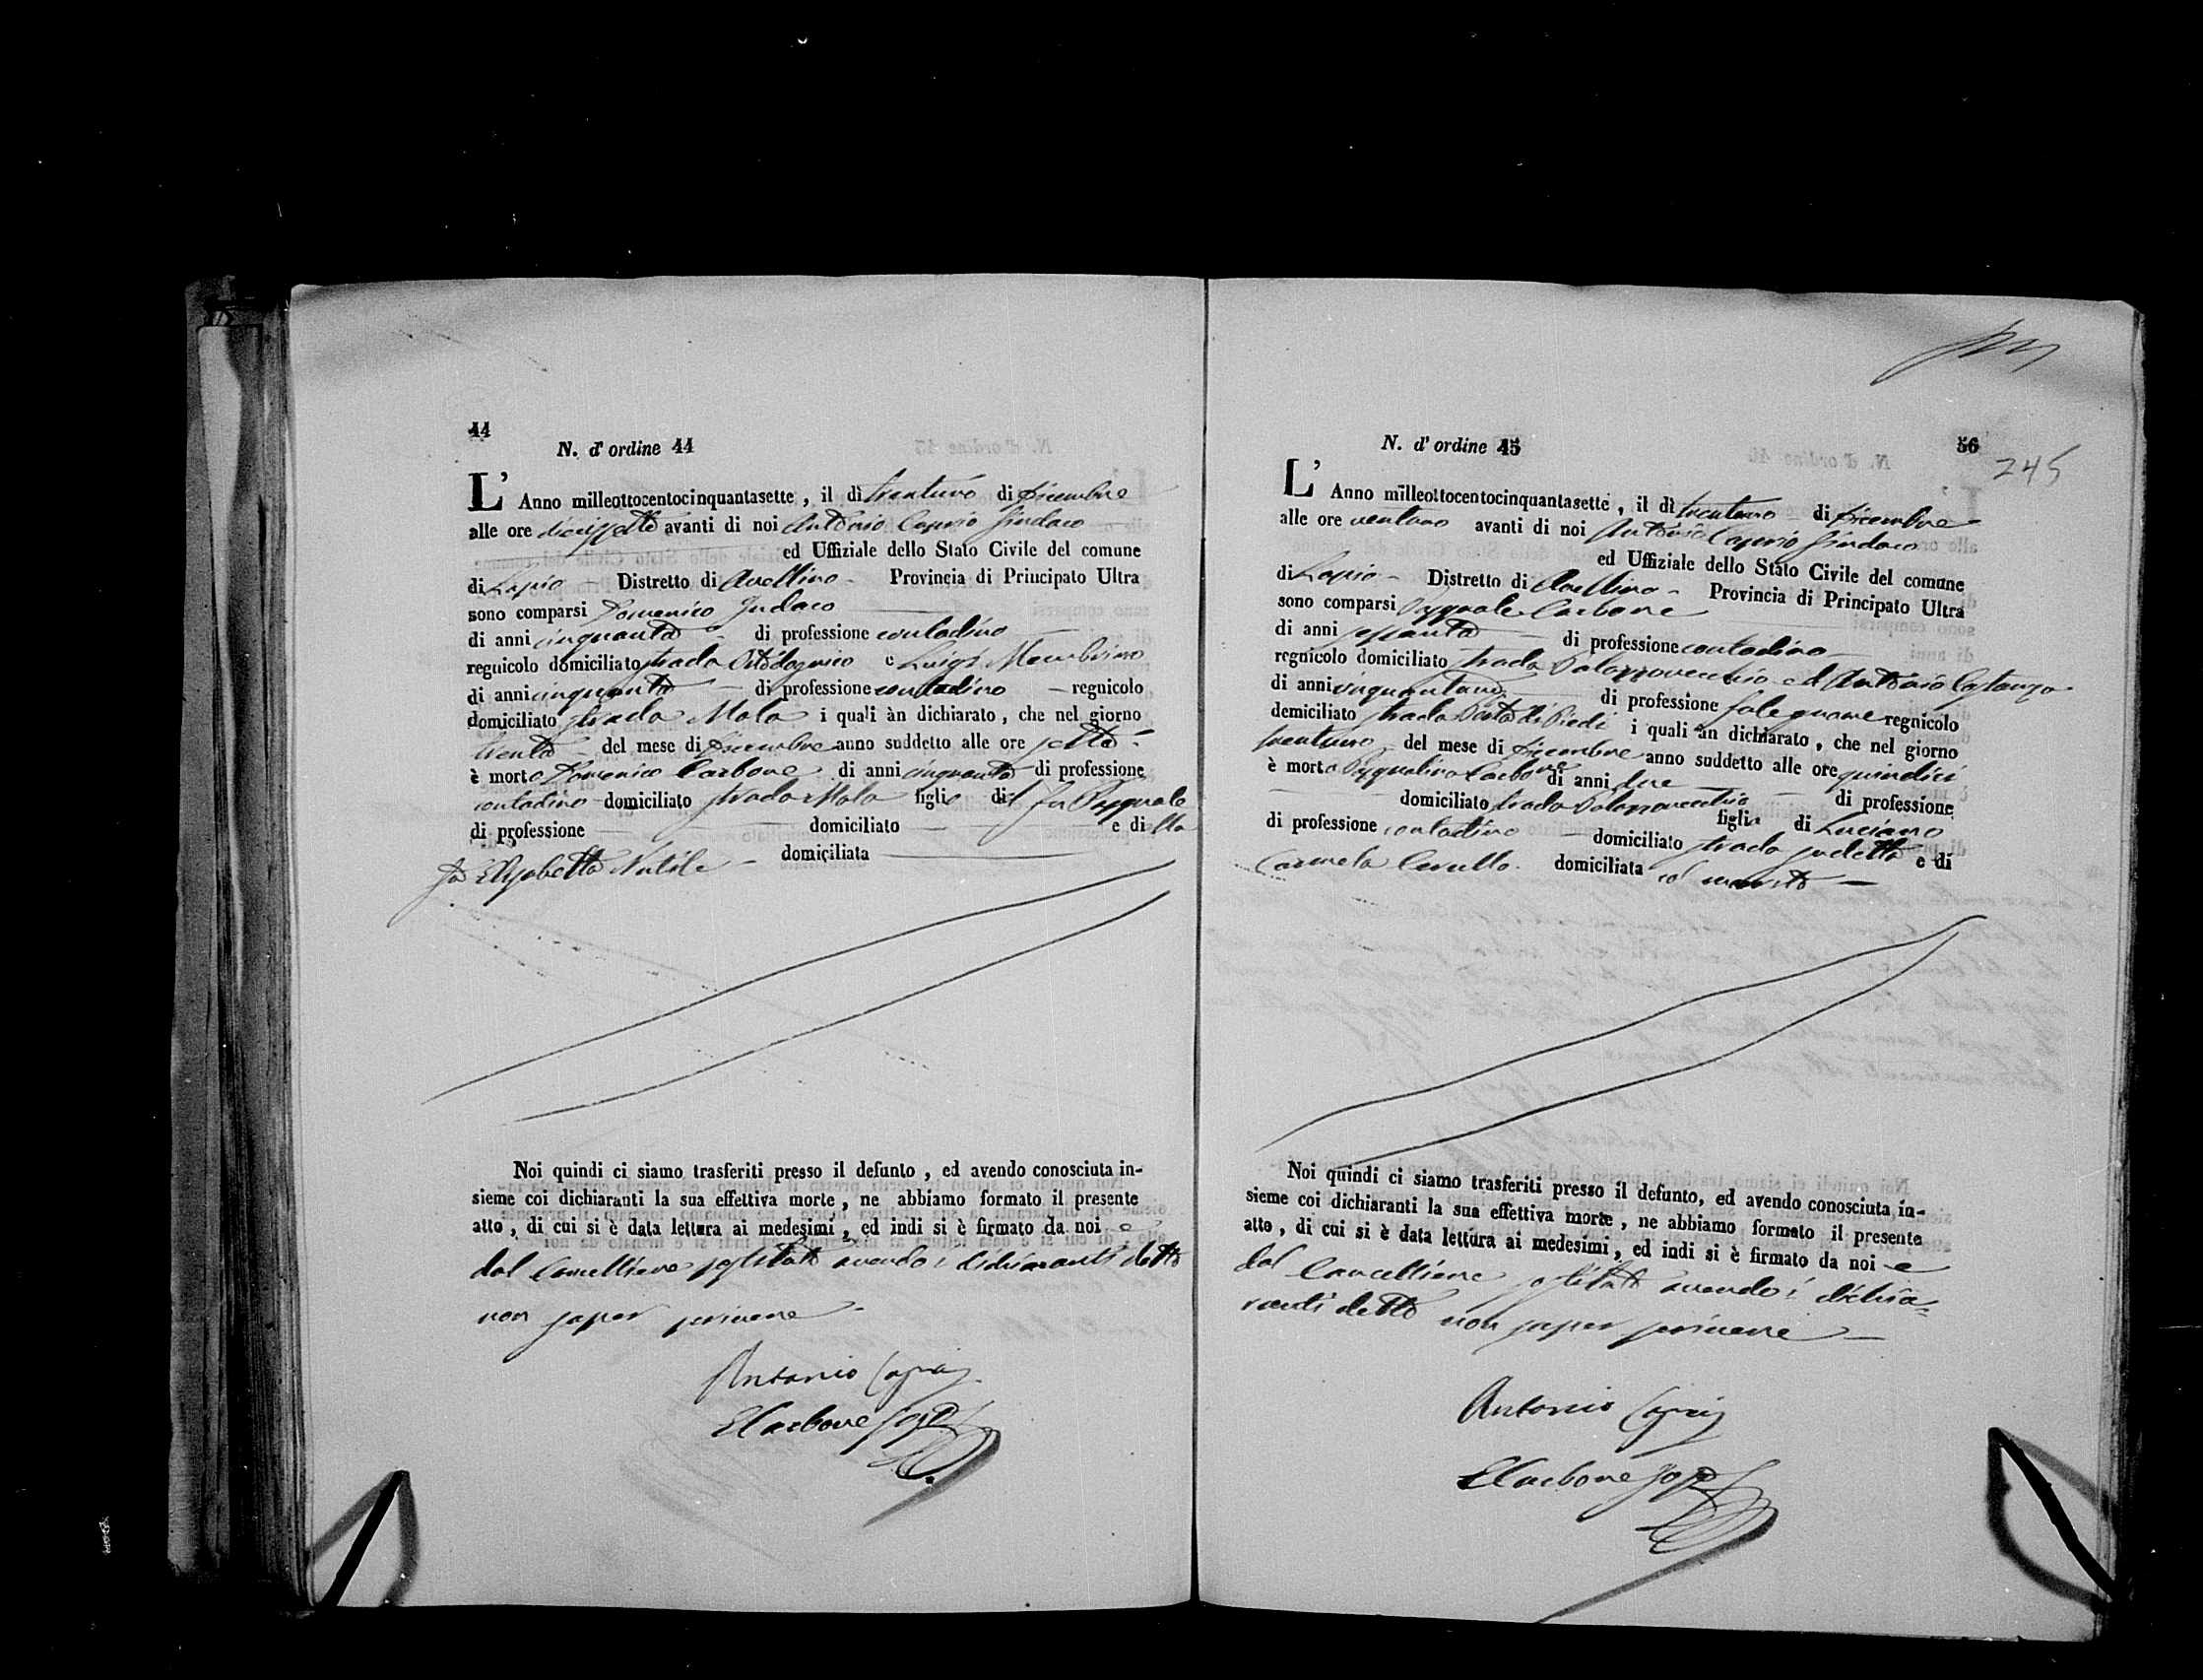 44
N. d' ordine 44
L' Anno milleottocentocinquantasette, il dì trentuno di Dicembre
alle ore diciassette avanti di noi Antonio Caprio Sindaco
ed Uffiziale dello Stato Civile del comune
di Lapio Distretto di Avellino Provincia di Principato Ultra
sono comparsi Domenico Iudaco
di anni cinquanta di professione contadino
regnicolo domiciliato strada e Luigi Membrino
di anni cinquanta di professione contadino regnicolo
domiciliato strada Mola i quali àn dichiarato, che nel giorno
trenta del mese di Dicembre anno suddetto alle ore sette
è morto Domenico Carbone di anni cinquanta di professione
contadino domiciliato strada Mola figlio del fu Pasquale
di professione domiciliato e della
fu Elisabetta domiciliata
Noi quindi ci siamo trasferiti presso il defunto, ed avendo conosciuta in-
sieme coi dichiaranti la sua effettiva morte, ne abbiamo formato il presente
atto, di cui si è data lettura ai medesimi, ed indi si è firmato da noi e
dal Cancelliere sostituto avendo i dichiaranti detto
non saper scrivere
Antonio Caprio
ECarbone Sost
N. d' ordine 45
56
245
L' Anno milleottocentocinquantasette, il dì trentuno di Dicembre
alle ore ventuno avanti di noi Antonio Caprio Sindaco
ed Uffiziale dello Stato Civile del comune
di Lapio Distretto di Avellino Provincia di Principato Ultra
sono comparsi Pasquale Carbone
di anni sessanta di professione contadino
regnicolo domiciliato strada Palazzovecchio ed Antonio Castanza
di anni cinquantuno di professione falegname regnicolo
domiciliato strada di Piedi i quali àn dichiarato, che nel giorno
trentuno del mese di Dicembre anno suddetto alle ore quindici
è morta Pasqualina Carbone di anni due di professione
domiciliato strada Palazzovecchio figlia di Luciano
di professione contadino domiciliato strada sudetta e di
Carmela Cerullo domiciliata col marito
Noi quindi ci siamo trasferiti presso il defunto, ed avendo conosciuta in-
sieme coi dichiaranti la sua effettiva morte, ne abbiamo formato il presente
atto, di cui si è data lettura ai medesimi, ed indi si è firmato da noi e
dal Cancelliere sostituto avendo i dichia-
ranti detto non saper scrivere
Antonio Caprio
ECarbone Sost